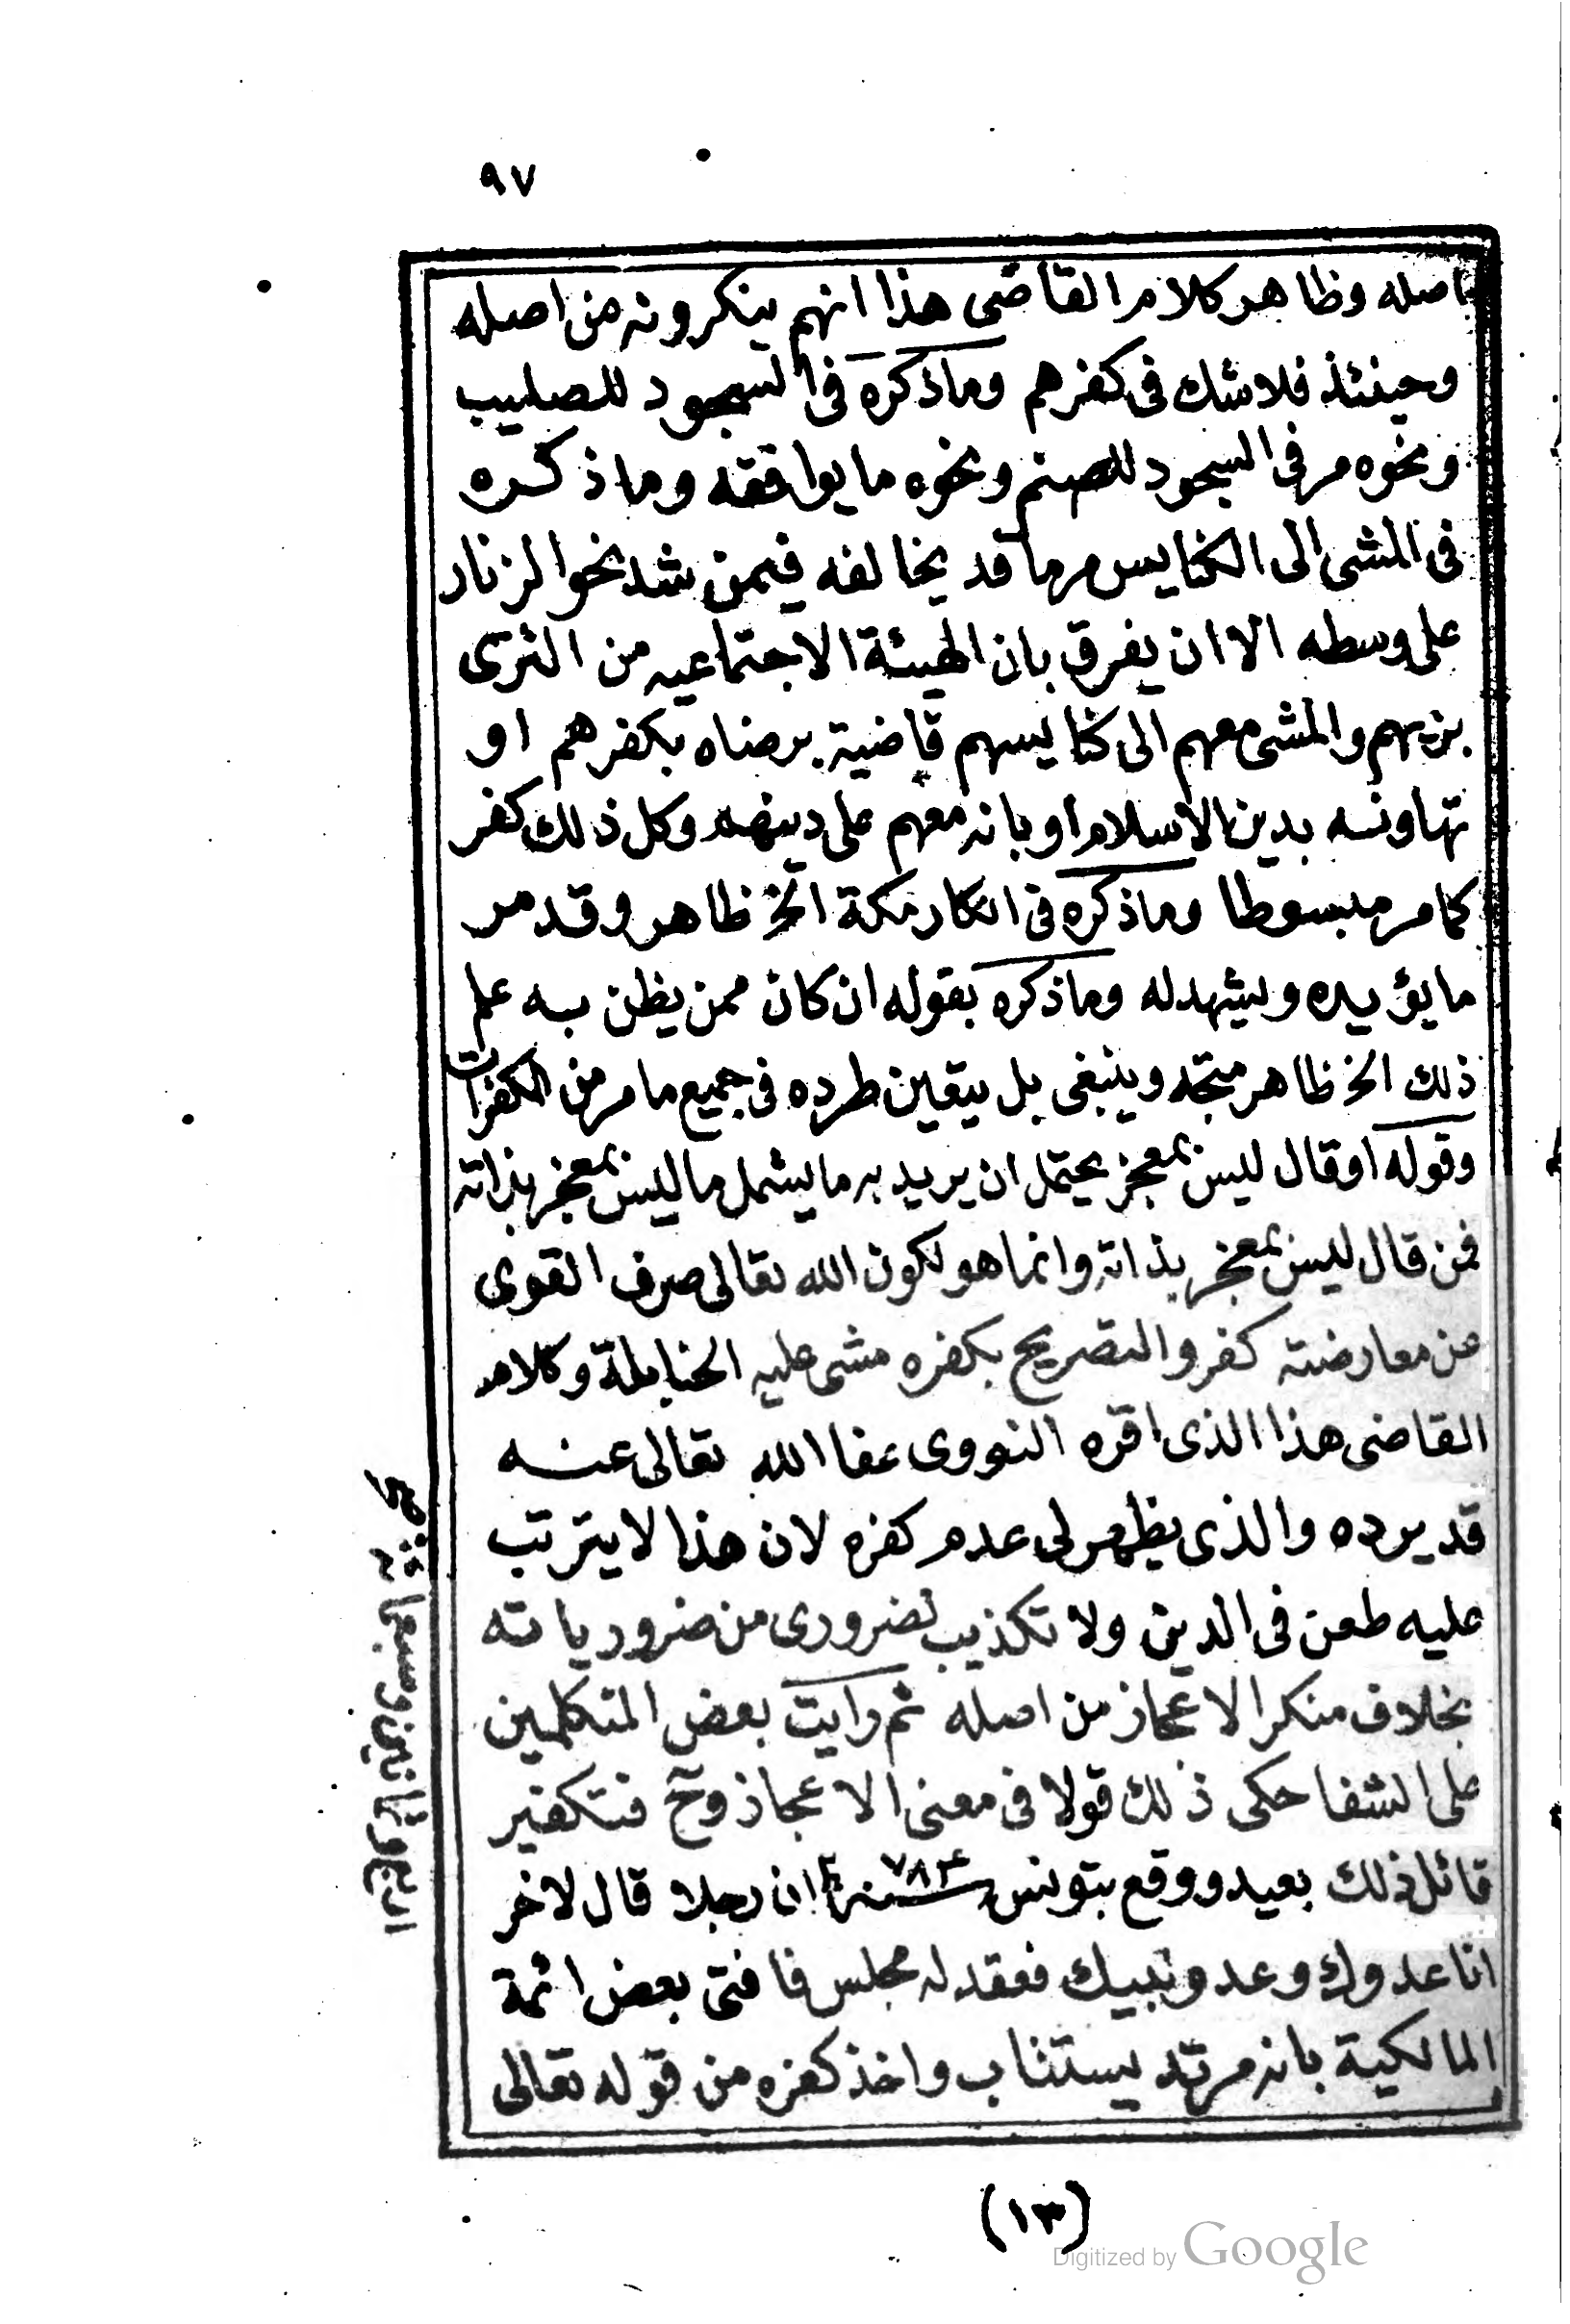 ٩٧
اصله وظاهر كلام القاضى هذا انهم ينكرونه من اصله
وحينئذ فلا شك فى كفرهم وما ذكره فى السجود للصليب
ونحوه مر فى السجود للصنم ونحوه ما يوافقه وما ذكره
فى المشى الى الكنايس مر ما قد يخالفه فيمن شد نحو الزنار
على وسطه الا ان يفرق بان الهيئة الاجتماعيه من التزى
بزيهم والمشى معهم الى كنايسهم قاضية برضاه بكفرهم او
تهاونه بدين الاسلام او بانه معهم على دينهم وكل ذلك كفر
كما مر مبسوطا وما ذكره فى انكار مكة الخ ظاهر وقد مر
ما يؤيده ويشهد له وما ذكره بقوله ان كان ممن يظن به علم
ذلك الخ ظاهر متجه وينبغى بل يتعين طرده فى جميع ما مر من المكفرات
وقوله او قال ليس بمعجز يحتمل ان يريد به ما يشمل ما ليس بمعجز بذاته
فمن قال ليس بمعجز بذاته وانما هو لكون الله تعالى صرف القوى
عن معارضته كفر والتصريح بكفره مشى عليه الحنابلة وكلام
القاضى هذا الذى اقره النووى عفا الله تعالى عنه
قد يرده والذى يظهر لى عدم كفره لان هذا لا يترتب
عليه طعن فى الدين ولا تكذيب لضرورى من ضرورياته
بخلاف منكر الاعجاز من اصله ثم رايت بعض المتكلمين
على الشفا حكى ذلك قولا فى معنى الاعجاز وح فتكفير
قائل ذلك بعيد ووقع بتونس سنة ٧٨٤ ان رجلا قال لاخر
انا عدوك وعدو نبيك فعقد له مجلس فافتى بعض ائمة
المالكية بانه مرتد يستتاب واخذ كفره من قوله تعالى
اربع وثمانين وسبعمائة
(١٣)
Digitized by Google